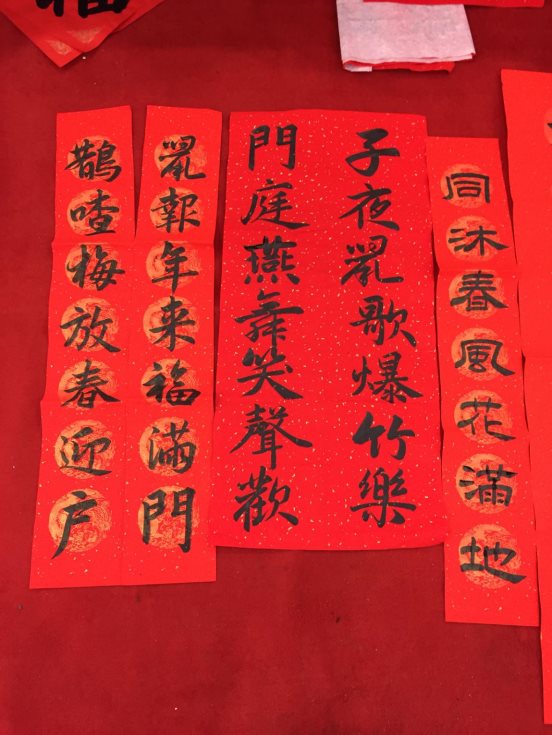 福
同沐春風花滿地
子夜鼠歌爆竹樂
門庭燕舞笑聲歡
鼠報年来福滿門
鵲喳梅放春迎户